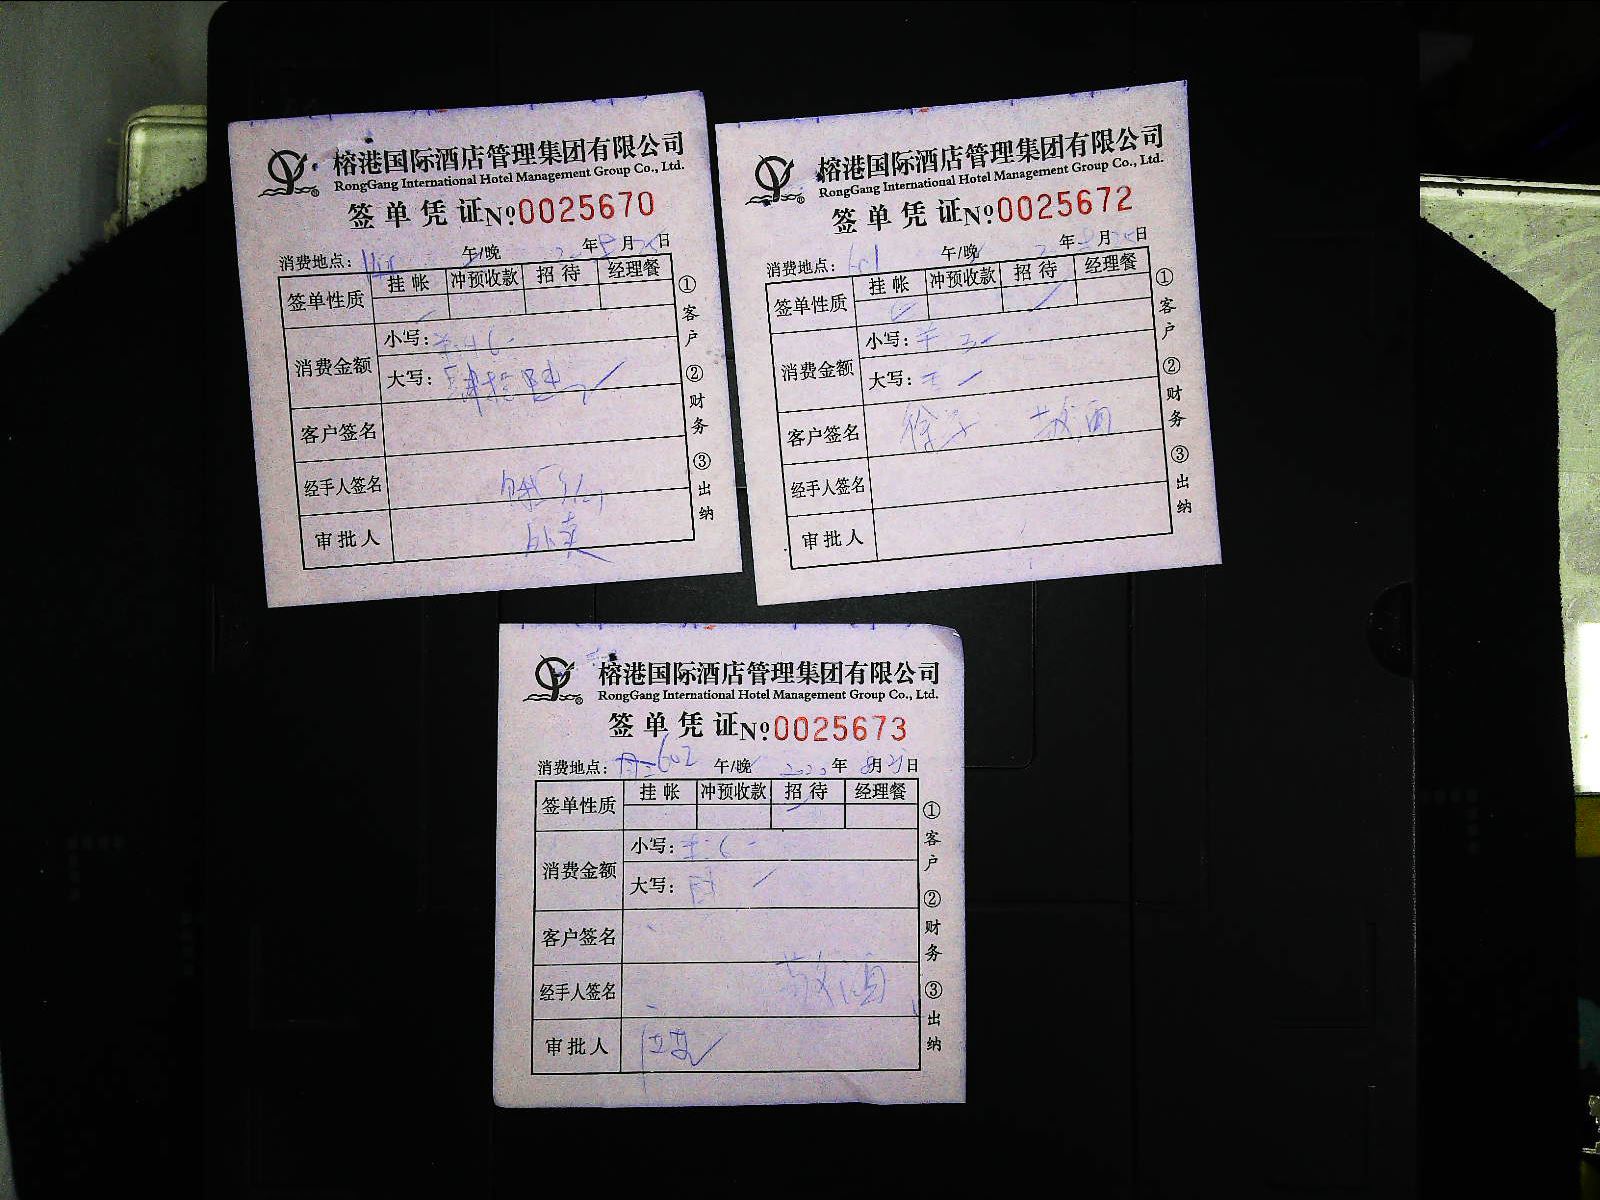 榕港国际酒店管理集团有限公司
RongGang International Hotel Management Group Co., Ltd.
签单凭证 №0025670
消费地点: 午/晚 年 8月 日
签单性质 挂帐 冲预收款 招待 经理餐
消费金额 小写: 46-
大写: 肆拾陆
客户签名
经手人签名
外卖
审批人
①客户 ②财务 ③出纳
榕港国际酒店管理集团有限公司
RongGang International Hotel Management Group Co., Ltd.
签单凭证 №0025672
消费地点: 601 午/晚 年 月 日
签单性质 挂帐 冲预收款 招待 经理餐
消费金额 小写:
大写:
客户签名 徐 敬酒
经手人签名
审批人
①客户 ②财务 ③出纳
榕港国际酒店管理集团有限公司
RongGang International Hotel Management Group Co., Ltd.
签单凭证 №0025673
消费地点: 602 午/晚 2020年 8月 日
签单性质 挂帐 冲预收款 招待 经理餐
消费金额 小写: 6-
大写: 陆
客户签名
经手人签名 敬酒
审批人
①客户 ②财务 ③出纳